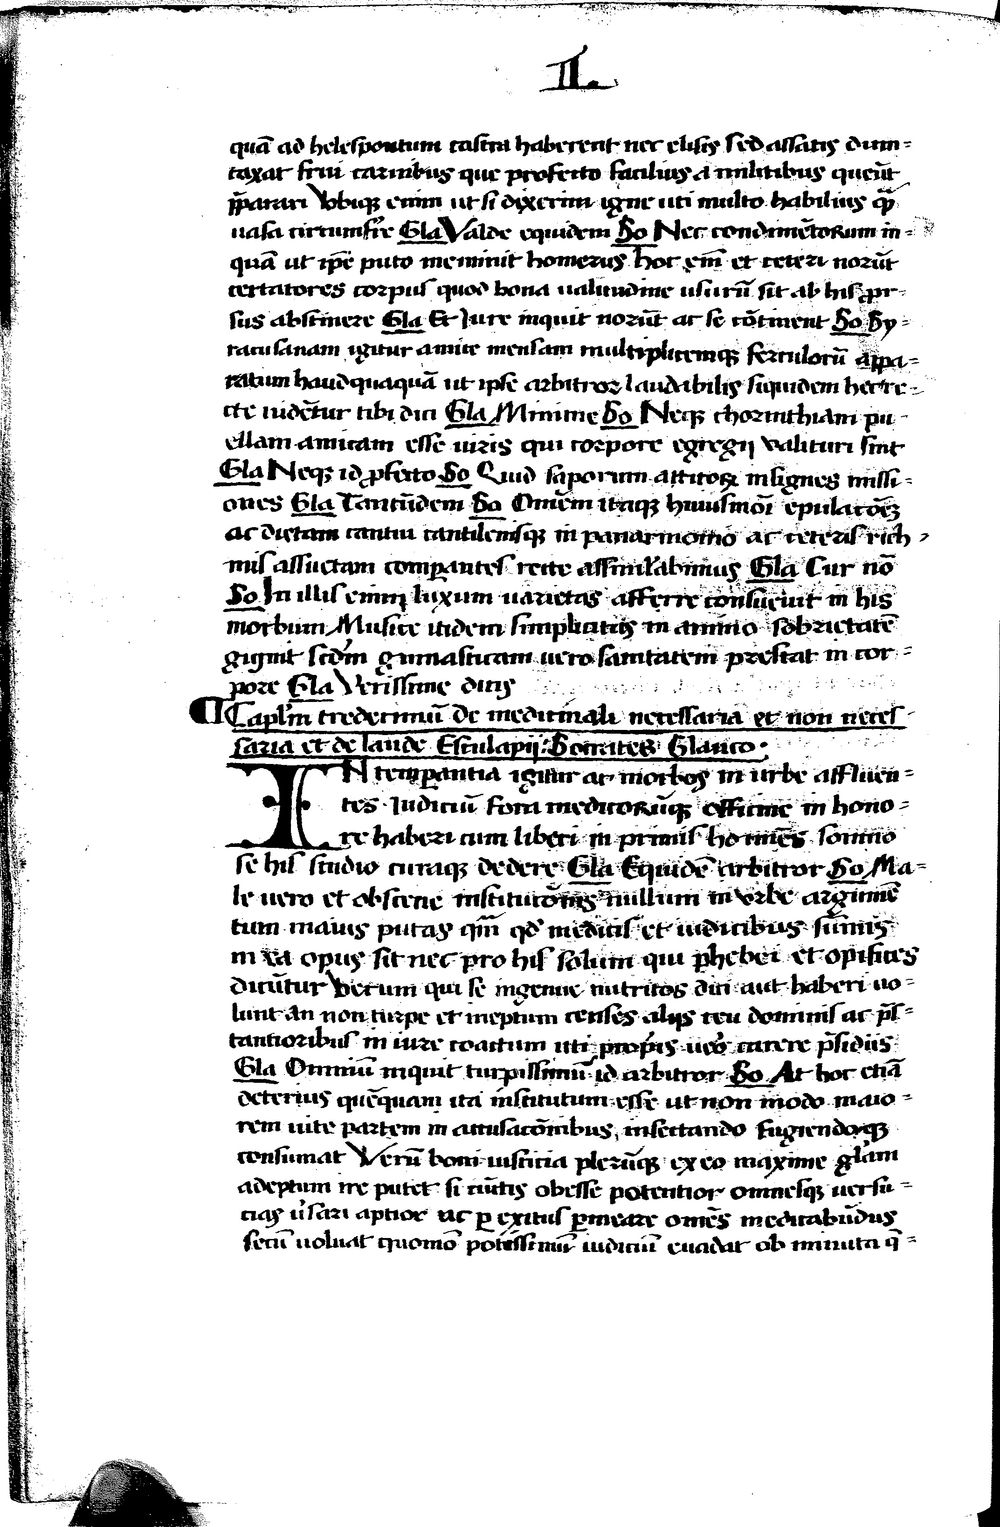 II.
quā ad helespontum castra haberent nec elisis sed assatis dum=
taxat frui carnibus que profecto facilius a militibus queūt
p̄parari Vbiqꝫ enim ut si dixerim igne uti multo habilius qͫ̄
uasa circumfr̄e Gla Valde equidem So Nec condimētorum in=
quā ut ip̄e puto meminit homerus hoc em̄ et ceteri norūt
certatores corpus quod bona ualitudine usurū sit ab his pr=
sus abstinere Gla Et Jure inquit norūt ac se cōtinent So Sy=
racusanam igitur amice mensam multiplicemqꝫ ferculorū appa=
ratum haudquaquā ut ipse arbitror laudabilis siquidem hec re=
cte uidētur tibi dici Gla Minime So Neqꝫ chorinthiam pu=
ellam amicam esse uiris qui corpore egregij valituri sint
Gla Neqꝫ id ꝓfecto So Quid saporum atticoꝝ insignes missi=
ones Gla Tantūdem So Omēm itaqꝫ huiusmōi epulacōēꝫ
ac dietam cantui cantilenisqꝫ in panarmonio ac ceteris rich
mis assuetam comꝑantes recte assimilabimus Gla Cur nō
So In illis enim luxum uarietas afferre consueuit in his
morbum Musice itidem simplicitas in animo sobrietatē
gignit sed̄m gimnasticam uero sanitatem prestat in cor=
pore Gla Verissime dicis
¶ Capl̄m tredecimū De medicinali necessaria et non neces
saria et de laude Esculapij: Socrates Glauco.
IN temꝑantia igitur ac morbos in urbe affluen=
tes Judiciū fora medicorūqꝫ officine in hono=
re haberi cum liberi in primis homies somno
se his studio curaqꝫ dedere Gla Equidē arbitror So Ma=
le uero et obscene institucōnis nullum in vrbe argumē
tum maius putas qm̄ qd̄ medicis et iudicibus sūmis
in ea opus sit nec pro his solum qui phebei et opifices
dicūtur Verum qui se ingenue nutritos dici aut haberi uo=
lunt an non turpe et ineptum censes alijs ceu dominis ac p̄s=
tantioribus in iure coactum uti propr̄is uero carere p̄sidiis
Gla Omniū inquit turpissimū id arbitror So At hoc etiā
deterius quēquam ita institutum esse ut non modo maio=
rem uite partem in accusacōnibus, insectando fugiendoqꝫ
consumat Verū boni iusticia plerūqꝫ ex eo maxime gl̄am
adeptum ire putet si ciuītis obesse potentior omnesqꝫ uersu=
cias uersari aptior ac ꝑ exitus ꝑmeare omēs meditabūdus
secū uoluat quomō potissimū iudiciū euadat ob minuta q̄=